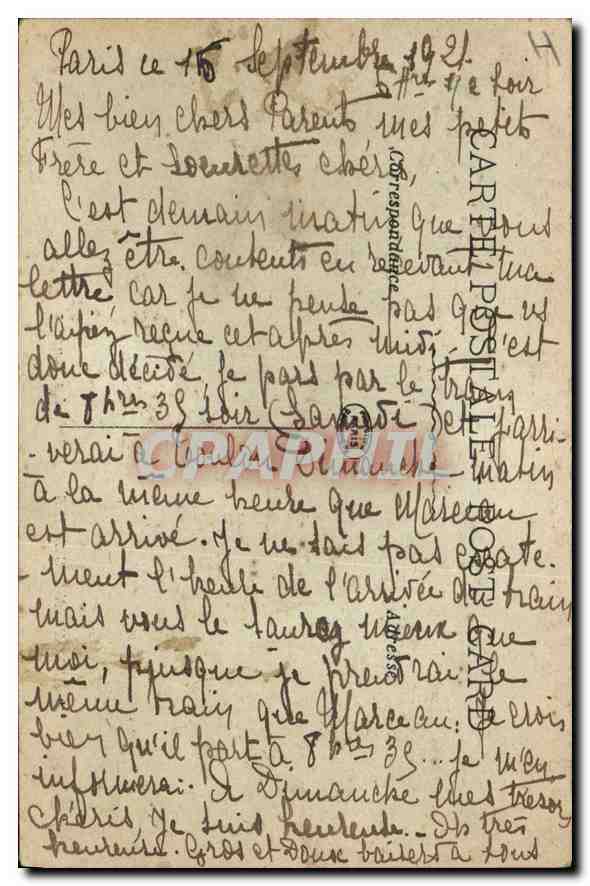 Paris ce 15 Septembre 1921.
5 Hres 1/2 soir
Mes bien chers Parents mes petits
Frère et Soeurettes chéris,
C'est demain matin que vous
allez être contents en recevant ma
lettre, car je ne pense pas que vs
l'ayiez reçue cet après midi. C'est
donc décidé, je pars par le train
de 8hres 35 soir (Samedi) et j'arri-
-verai à Dimanche matin
à la même heure que Marceau
est arrivé. Je ne sais pas exacte-
-ment l'heure de l'arrivée du train
mais vous le saurez mieux que
moi, puisque je prendrai le
même train que Marceau. Je crois
bien qu'il part à 8hres 35... je m'en
informerai. A Dimanche mes trésors
chéris, Je suis heureuse. - Oh très
heureuse. Gros et Doux baisers à tous
CARTE POSTALE - POST CARD
Correspondance
Adresse
H
CPAPHIL
PARIS